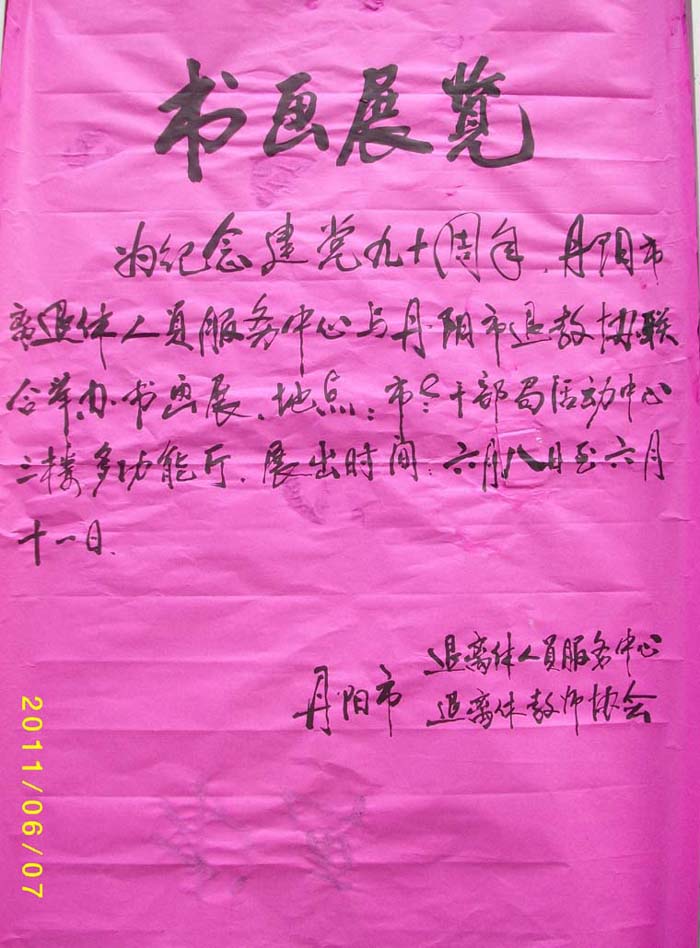 书画展览
为纪念建党九十周年、丹阳市
离退休人员服务中心与丹阳市退教协联
合举办书画展、地点：市老干部局活动中心
三楼多功能厅、展出时间：六月八日至六月
十一日、
退离休人员服务中心
丹阳市
退离休教师协会
2011/06/07